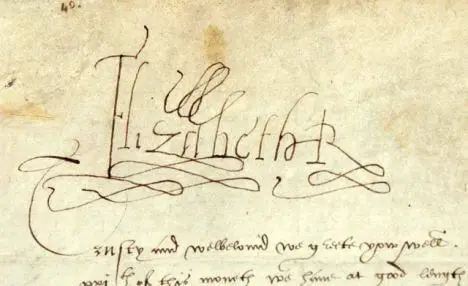 48.
Elizabeth R
Trusty and welbelovid we grete yow well.
of this moneth we have at good length